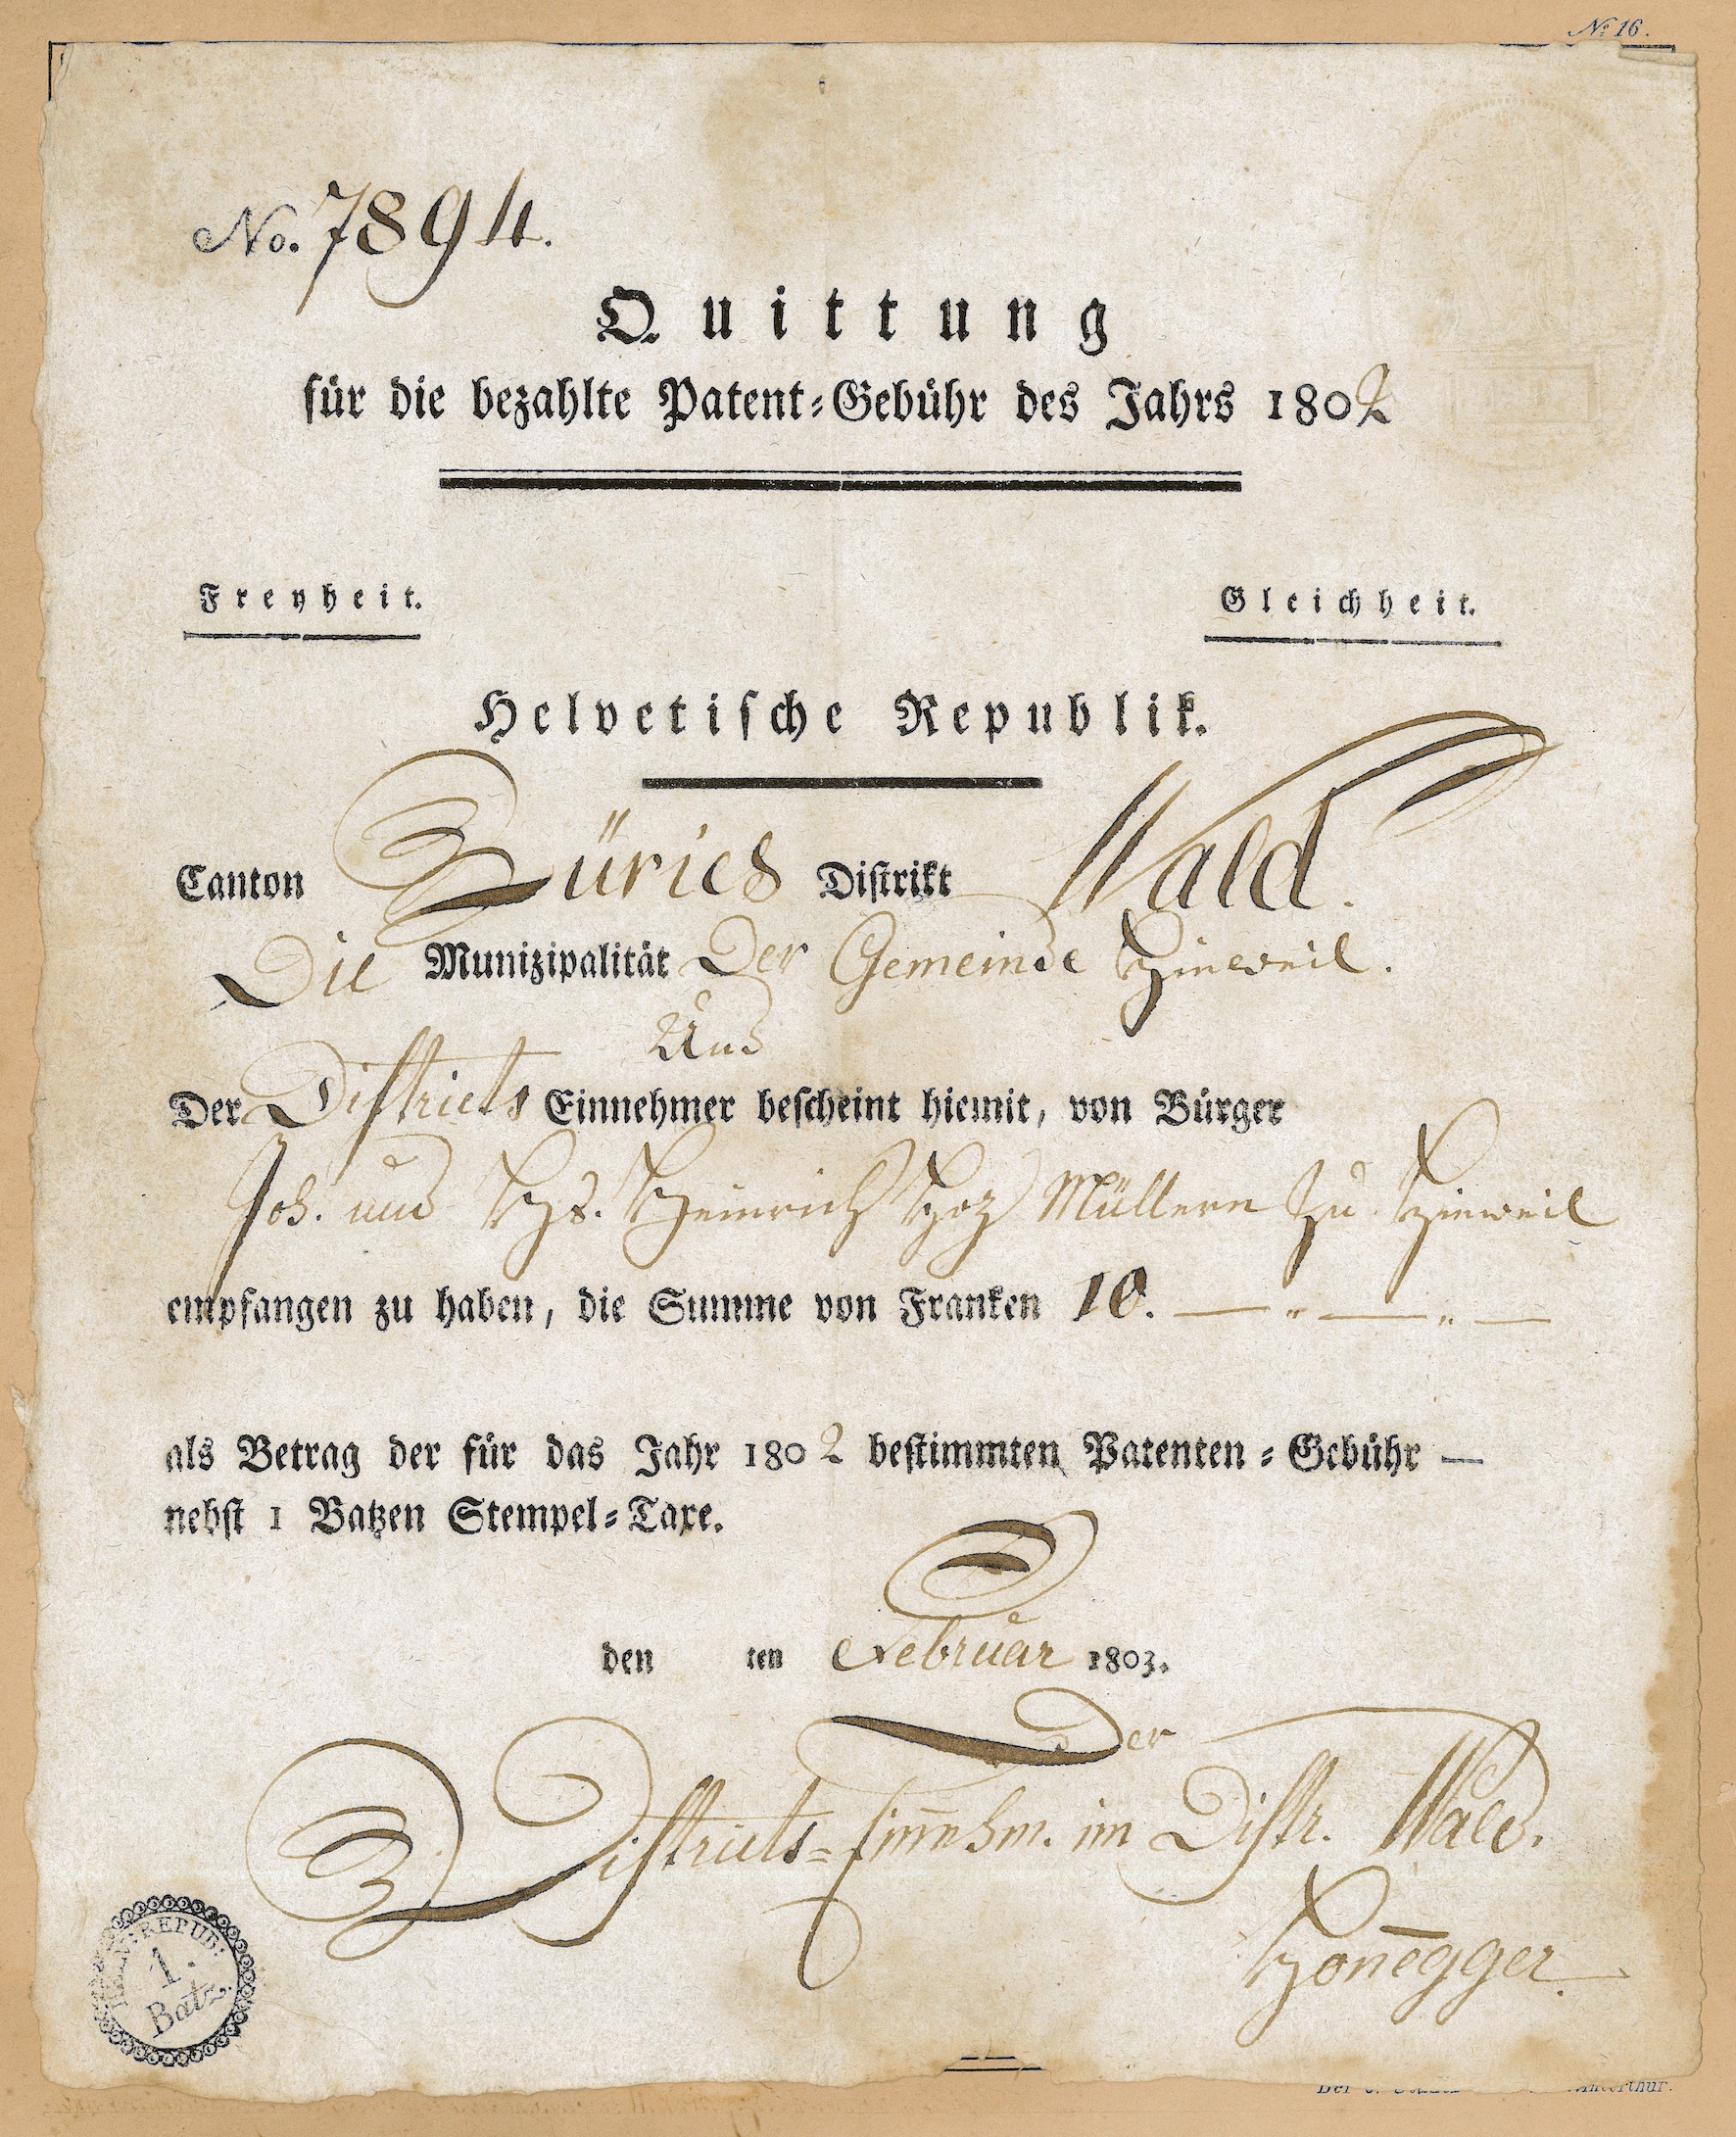 No. 16.
No. 7894.
Quittung
für die bezahlte Patent-Gebühr des Jahrs 1802
Freyheit.
Gleichheit.
Helvetische Republik.
Canton Zürich Distrikt Wald.
Die Munizipalität Der Gemeinde Hinweil.
Und
Der Districts Einnehmer bescheint hiemit, von Bürger
Joh. und Hs. Heinrich Hoz Müllern Zu Hinweil
empfangen zu haben, die Summe von Franken 10. — " — " —
als Betrag der für das Jahr 1802 bestimmten Patenten-Gebühr —
nebst 1 Batzen Stempel-Taxe.
den ten Februar 1803.
Der
Districts-Einnehm. im Distr. Wald.
Honegger.
HELV: REPUB:
1.
Batz.